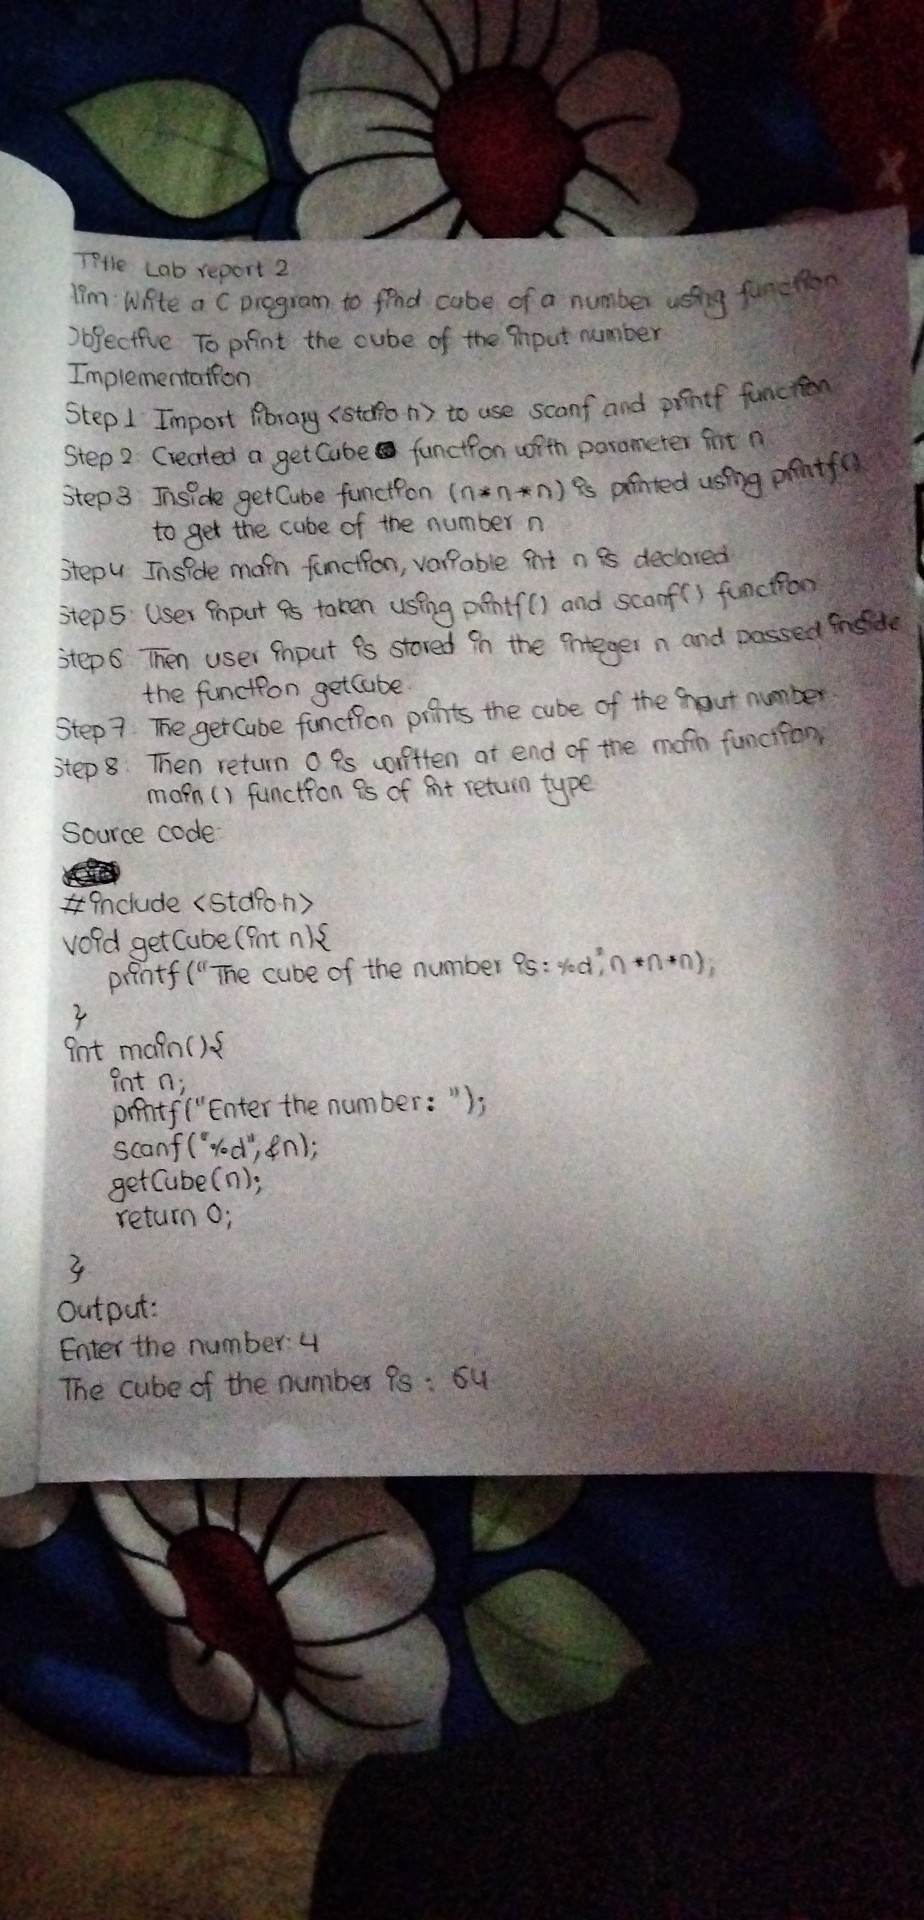 Title Lab report 2
Aim: Write a C program to find cube of a number using function
Objective To print the cube of the input number
Implementation
Step 1: Import library <stdio.h> to use scanf and printf function
Step 2: Created a getCube function with parameter int n
Step 3: Inside getCube function (n*n*n) is printed using printf()
to get the cube of the number n
Step 4: Inside main function, variable int n is declared
Step 5: User input is taken using printf() and scanf() function
Step 6: Then user input is stored in the integer n and passed inside
the function getCube.
Step 7: The getCube function prints the cube of the input number.
Step 8: Then return 0 is written at end of the main function,
main() function is of int return type
Source code:
#include <stdio.h>
void getCube(int n){
printf("The cube of the number is: %d", n*n*n);
}
int main(){
int n;
printf("Enter the number: ");
scanf("%d", &n);
getCube(n);
return 0;
}
Output:
Enter the number: 4
The cube of the number is: 64